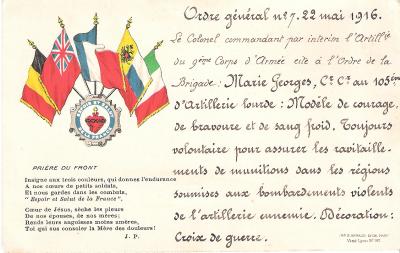 Ordre général n° 7. 22 mai 1916.
Le Colonel commandant par intérim l'Artillie
du 9ème Corps d'Armée cite à l'Ordre de la
Brigade : Marie Georges, Ct Ct au 105ème
d'Artillerie lourde : Modèle de courage,
de bravoure et de sang froid. Toujours
volontaire pour assurer les ravitaille-
ments de munitions dans les régions
soumises aux bombardements violents
de l'artillerie ennemie. Décoration:
Croix de guerre.
PRIÈRE DU FRONT
Insigne aux trois couleurs, qui donnes l'endurance
A nos cœurs de petits soldats,
Et nous gardes dans les combats,
"Espoir et Salut de la France".
Cœur de Jésus, sèche les pleurs
De nos épouses, de nos mères;
Rends leurs angoisses moins amères,
Toi qui sus consoler la Mère des douleurs!
J. P.